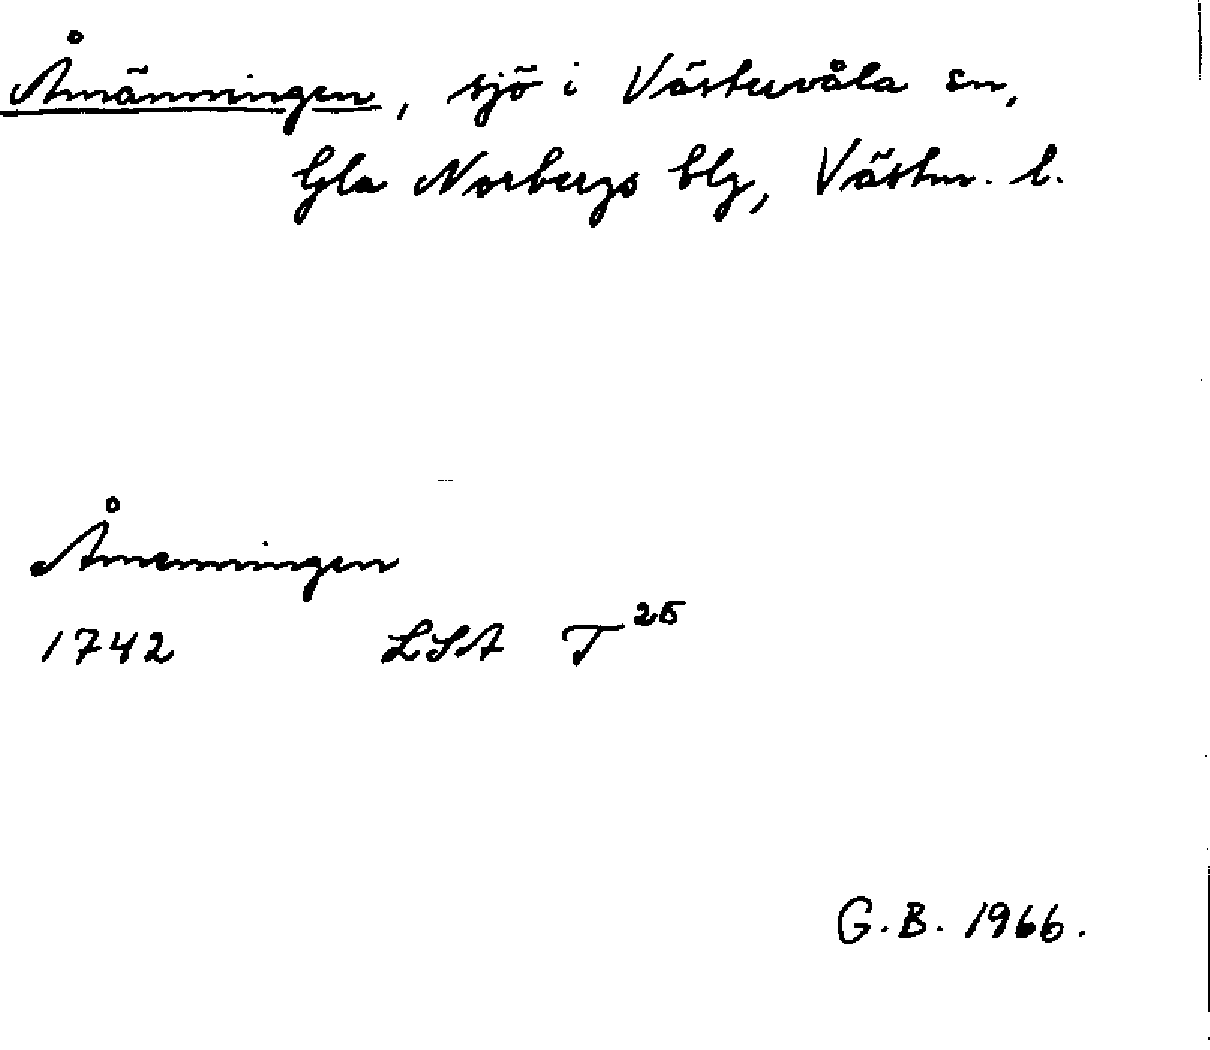 Åmänningen, sjö i Västervåla sn,
Gla Norbergs blg, Västm. l.
Åmenningen
1742 LSA T 25
G.B. 1966.